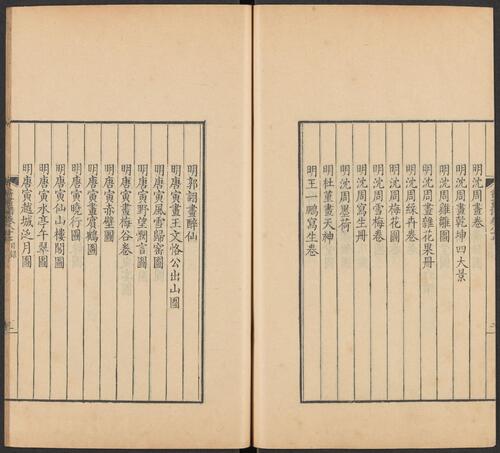 明沈周畫卷
明沈周畫乾坤四大景
明沈周雞雛圖
明沈周畫雜花果冊
明沈周綵卉卷
明沈周梅花圖
明沈周雪梅卷
明沈周寫生冊
明沈周墨荷
明杜堇畫天神
明王一鵬寫生卷
明郭詡畫醉仙
明唐寅畫王文恪公出山圖
明唐寅風雪歸窰圖
明唐寅野望憫言圖
明唐寅畫梅谷卷
明唐寅赤壁圖
明唐寅畫賓鶴圖
明唐寅曉行圖
明唐寅仙山樓閣圖
明唐寅水亭午翠圖
明唐寅越城泛月圖